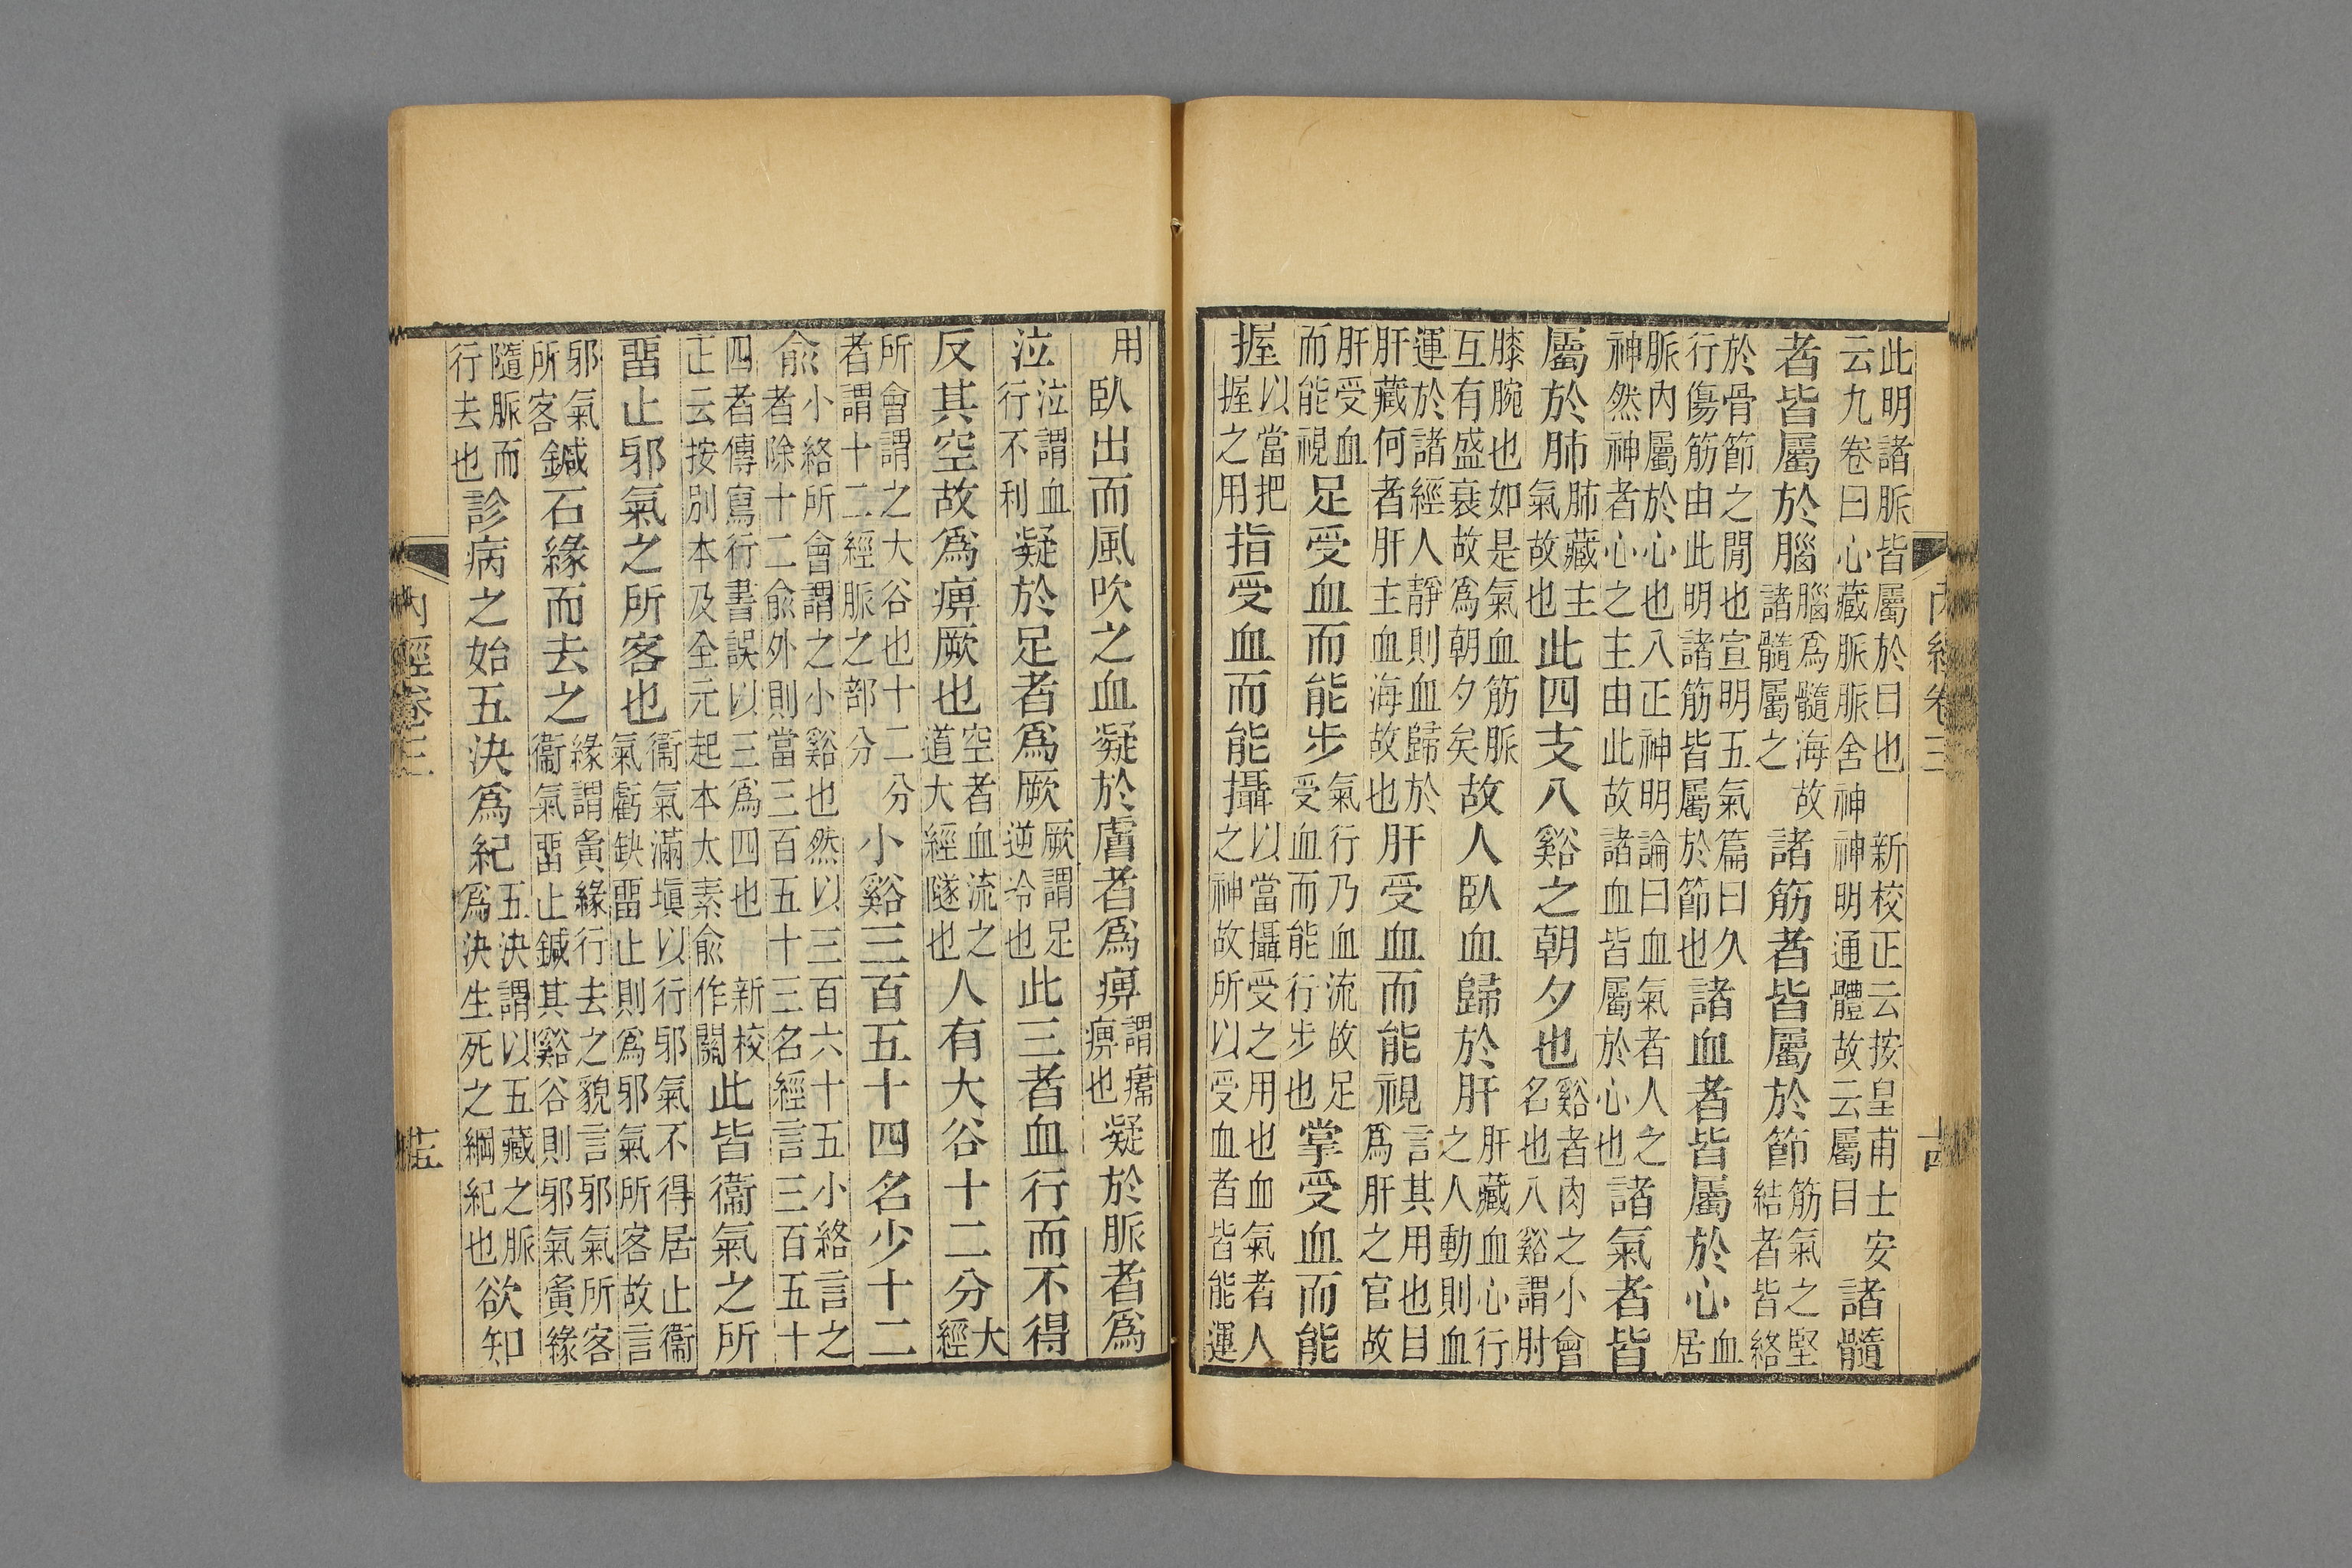 內經卷三　十四
此明諸脈皆屬於曰也　新校正云按皇甫士安云九卷曰心藏脈脈舍神神明通體故云屬目諸髓
者皆屬於腦腦爲髓海故諸髓屬之諸筋者皆屬於節筋氣之堅結者皆絡
於骨節之閒也宣明五氣篇曰久行傷筋由此明諸筋皆屬於節也諸血者皆屬於心血居
脈內屬於心也八正神明論曰血氣者人之神然神者心之主由此故諸血皆屬於心也諸氣者皆
屬於肺肺藏主氣故也此四支八谿之朝夕也谿者肉之小會名也八谿謂肘
膝腕也如是氣血筋脈互有盛衰故爲朝夕矣故人臥血歸於肝肝藏血心行之人動則血
運於諸經人靜則血歸於肝藏何者肝主血海故也肝受血而能視言其用也目爲肝之官故
肝受血而能視足受血而能步氣行乃血流故足受血而能行步也掌受血而能
握以當把握之用指受血而能攝以當攝受之用也血氣者人之神故所以受血者皆能運
用臥出而風吹之血凝於膚者爲痹謂𤸷痹也凝於脈者爲
泣泣謂血行不利凝於足者爲厥厥謂足逆冷也此三者血行而不得
反其空故爲痹厥也空者血流之道大經隧也人有大谷十二分大經
所會謂之大谷也十二分者謂十二經脈之部分小谿三百五十四名少十二
俞小絡所會謂之小谿也然以三百六十五小絡言之者除十二俞外則當三百五十三名經言三百五十
四者傳寫行書誤以三爲四也　新校正云按別本及全元起本太素俞作關此皆衞氣之所
畱止邪氣之所客也衞氣滿塡以行邪氣不得居止衞氣虧缺畱止則爲邪氣所客故言
邪氣所客鍼石緣而去之緣謂夤緣行去之貌言邪氣所客衞氣畱止鍼其谿谷則邪氣夤緣
隨脈而行去也診病之始五決爲紀五決謂以五藏之脈爲決生死之綱紀也欲知
內經卷三　十五